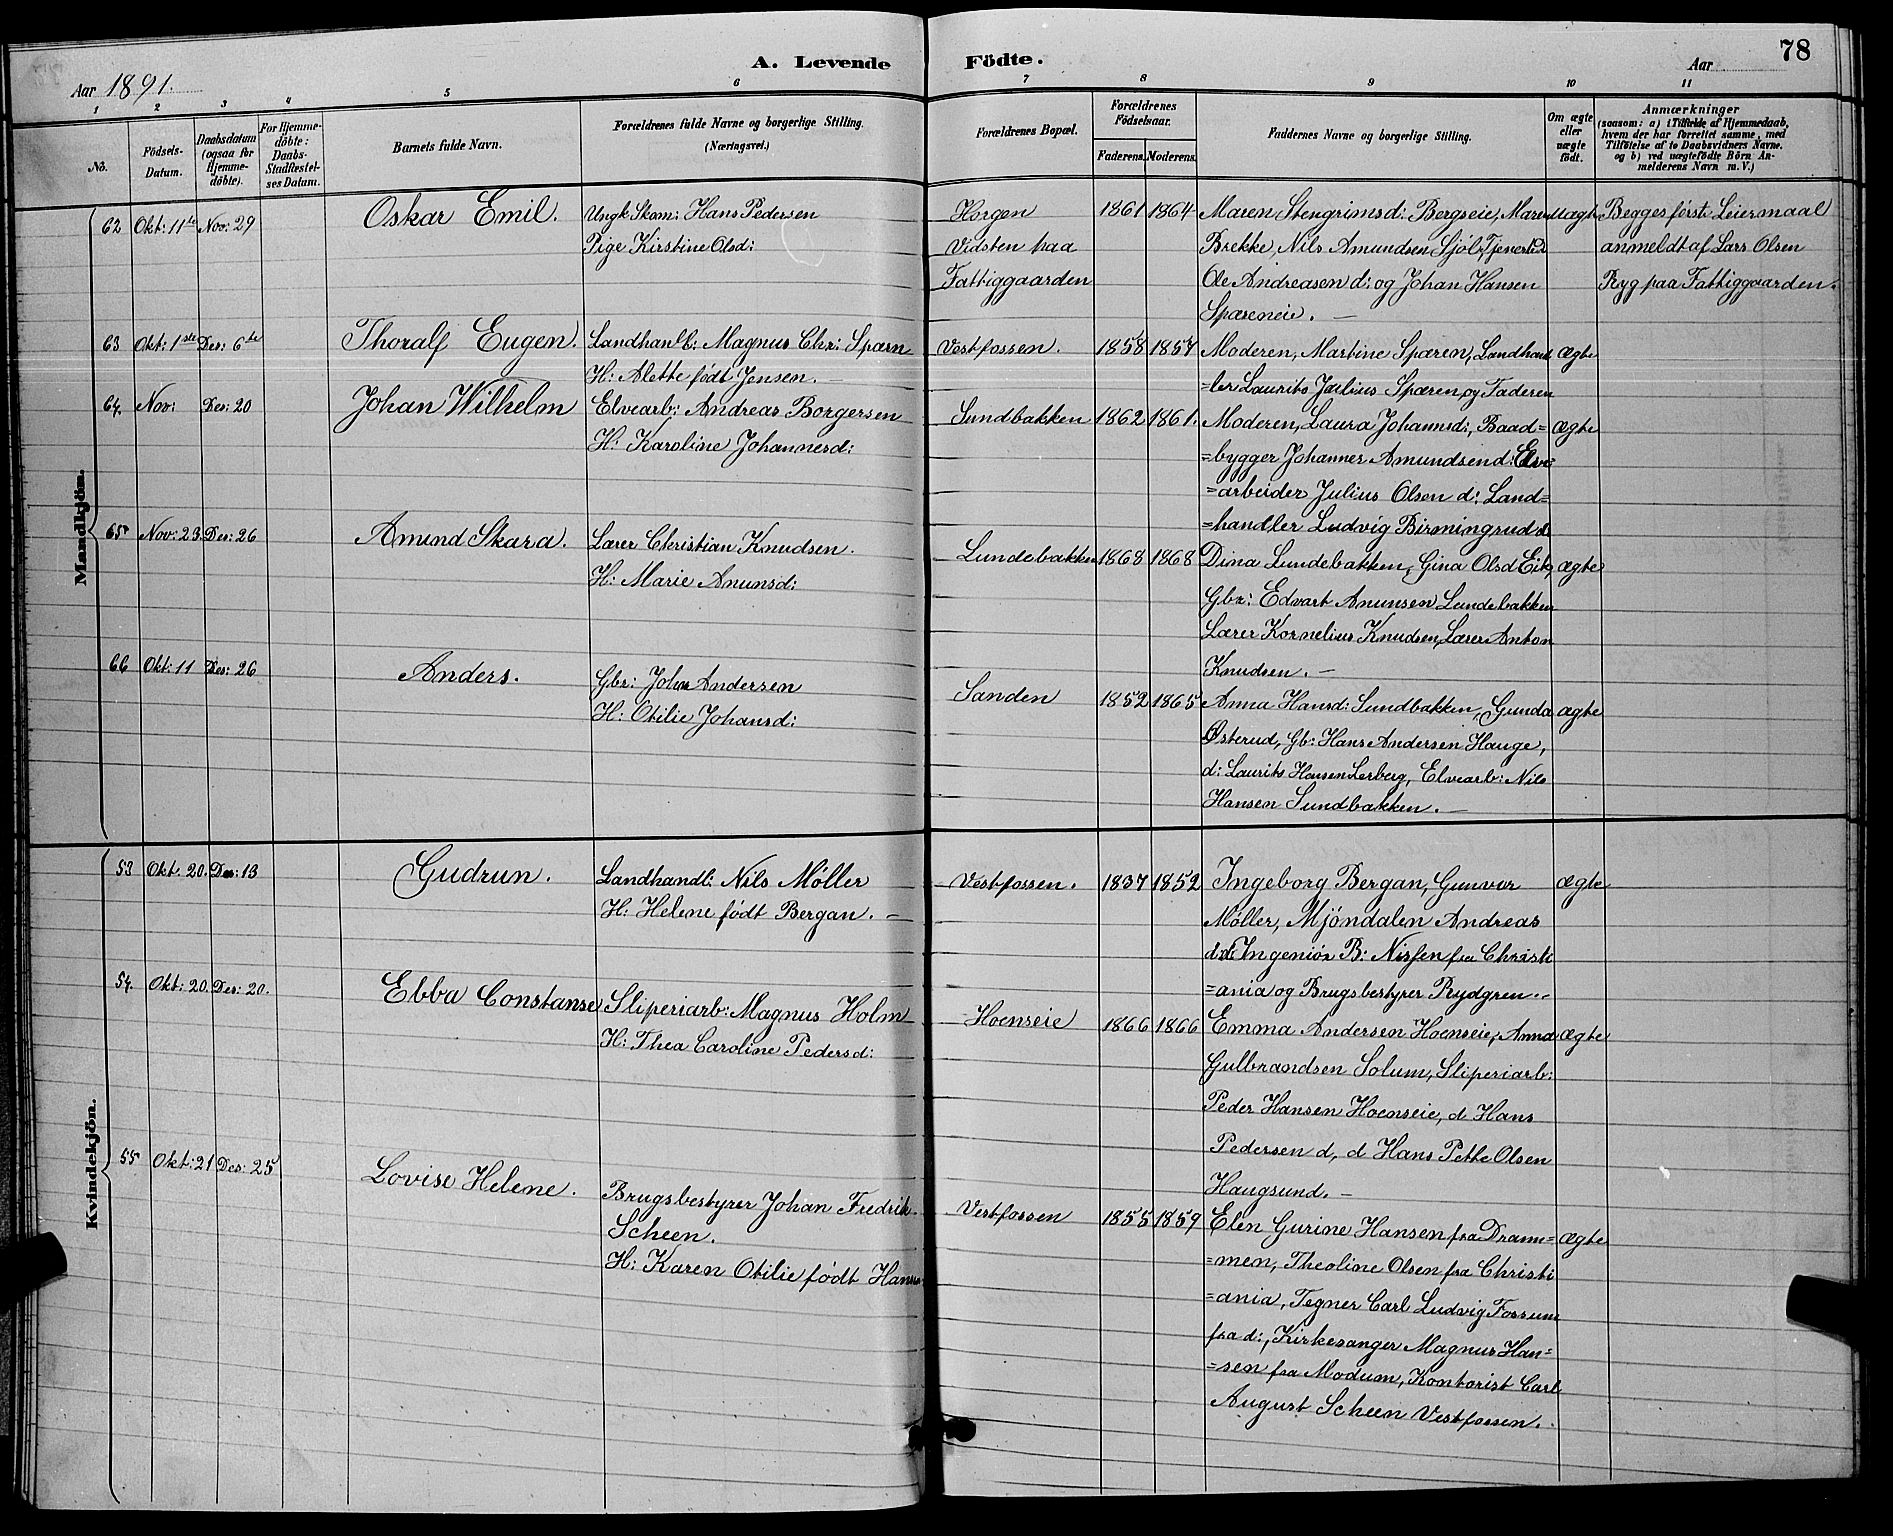 78
A. Levende Födte.
Aar 1891.
Aar
1 2 3 4 5 6 7 8 9 10 11
No.
Födsels-Datum.
Daabsdatum (ogsaa for Hjemme-döbte).
For Hjemme-döbte: Daabs-Stadfæstel-ses Datum.
Barnets fulde Navn.
Forældrenes fulde Navne og borgerlige Stilling. (Næringsvei.)
Forældrenes Bopæl.
Forældrenes Födselsaar.
Faderens. Moderens.
Faddernes Navne og borgerlige Stilling.
Om ægte eller uægte födt.
Anmærkninger
(saasom: a) i Tilfælde af Hjemmedaab,
hvem der har forrettet samme, med
Tilföielse af to Daabsvidners Navne.
og b) ved uægtefödte Börn An-
melderens Navn m. V.)
Mandkjön.
62 Okt: 11te Nov: 29 Oskar Emil. Ungk Skom: Hans Pedersen Horgen 1861 1864 Maren Stengrimsd: Bergseie, Maren uægte Begges förste Leiermaal
Pige Kirstine Olsd: Vidsten paa Brekke, Nils Amundsen Sjöl, anmeldt af Lars Olsen
Fattiggaarden Ole Andreasen d: og Johan Hansen Ryg paa Fattiggaarden.
Spæreneie. —
63 Okt: 1ste Des: 6te Thoralf Eugen. Landhandl: Magnus Chr: Spærn Vestfossen. 1858 1857 Moderen, Martine Spæren, Landhand ægte
H: Alette født Jensen. — =ler Laurits Julius Spæren, og Faderen
64. Nov: Des: 20 Johan Wilhelm Elvearb: Andreas Borgersen Sundbakken 1862 1861. Moderen, Laura Johannsd:, Baad= ægte
H: Karoline Johannesd: =bygger Johannes Amundsen d: Elve=
=arbeider Julius Olsen d: Land=
=handler Ludvig Birmingrud d.
65 Nov: 23 Des: 26 Amund Skara. Lærer Christian Knudsen. Lundebakken 1868 1868 Dina Lundebakken, Gina Olsd Eik, ægte
H: Marie Anunsd: Gbr: Edvart Anunsen Lundebakken
Lærer Kornelius Knudsen, Lærer Anton
Knudsen. —
66 Okt: 11 Des: 26 Anders. Gbr: Johan Andersen Sanden 1852 1865 Anna Hansd: Sundbakken, Gunda ægte
H: Otilie Johansd: Østerud, Gb: Hans Andersen Hauge,
d: Laurits Hansen Lerberg, Elvearb: Nils
Hansen Sundbakken. —
Kvindekjön.
53 Okt. 20. Des: 13 Gudrun. Landhandl: Nils Møller Vestfossen. 1837 1852 Ingeborg Bergan, Gunvor ægte
H: Helene født Bergan. — Møller, Mjöndalen Andreas
Ingeniör B: Nissen fra Christi
=ania og Brugsbestyrer Rydgren.
54. Okt: 20. Des: 20. Ebba Constanse Sliperiarb: Magnus Holm Hoenseie 1866 1866 Emma Andersen Hoenseie, Anna ægte
H: Thea Caroline Pedersd: Gulbrandsen Solum, Sliperiarb:
Peder Hansen Hoenseie, d Hans
Pedersen d, d Hans Petter Olsen
Haugsund. —
55 Okt: 21 Des: 25 Lovise Helene. Brugsbestyrer Johan Fredrik Vestfossen 1855 1859 Elen Gurine Hansen fra Dram= ægte
Scheen. =men, Theoline Olsen fra Christi
H: Karen Otilie født Hansen =ania, Tegner Carl Ludvig Fossum
fra d:, Kirkesanger Magnus Han=
=sen fra Modum, Kontorist Carl
August Scheen Vestfossen.